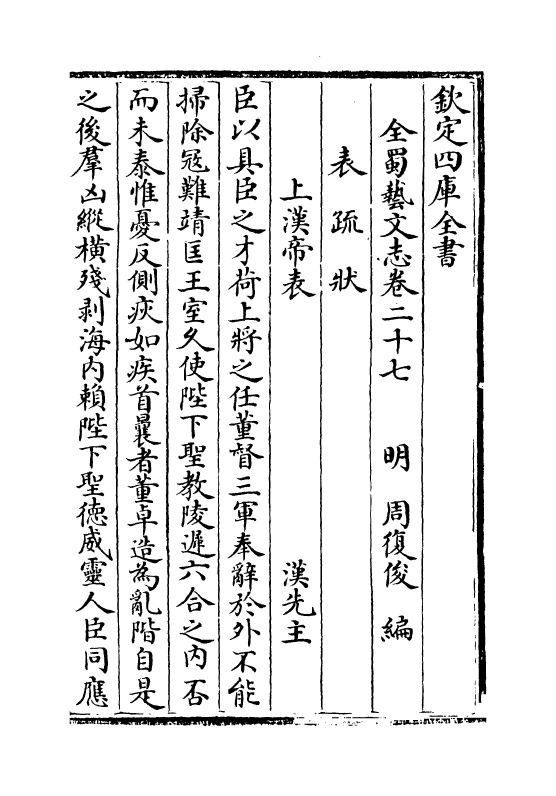 欽定四庫全書
全蜀藝文志卷二十七 明 周復俊 編
表 疏 狀
上漢帝表 漢先主
臣以具臣之才荷上將之任董督三軍奉辭於外不能
掃除冦難靖匡王室久使陛下聖教陵遲六合之内否
而未泰惟憂反側疢如疾首曩者董卓造為亂階自是
之後羣凶縱橫殘剥海内賴陛下聖徳威靈人臣同應